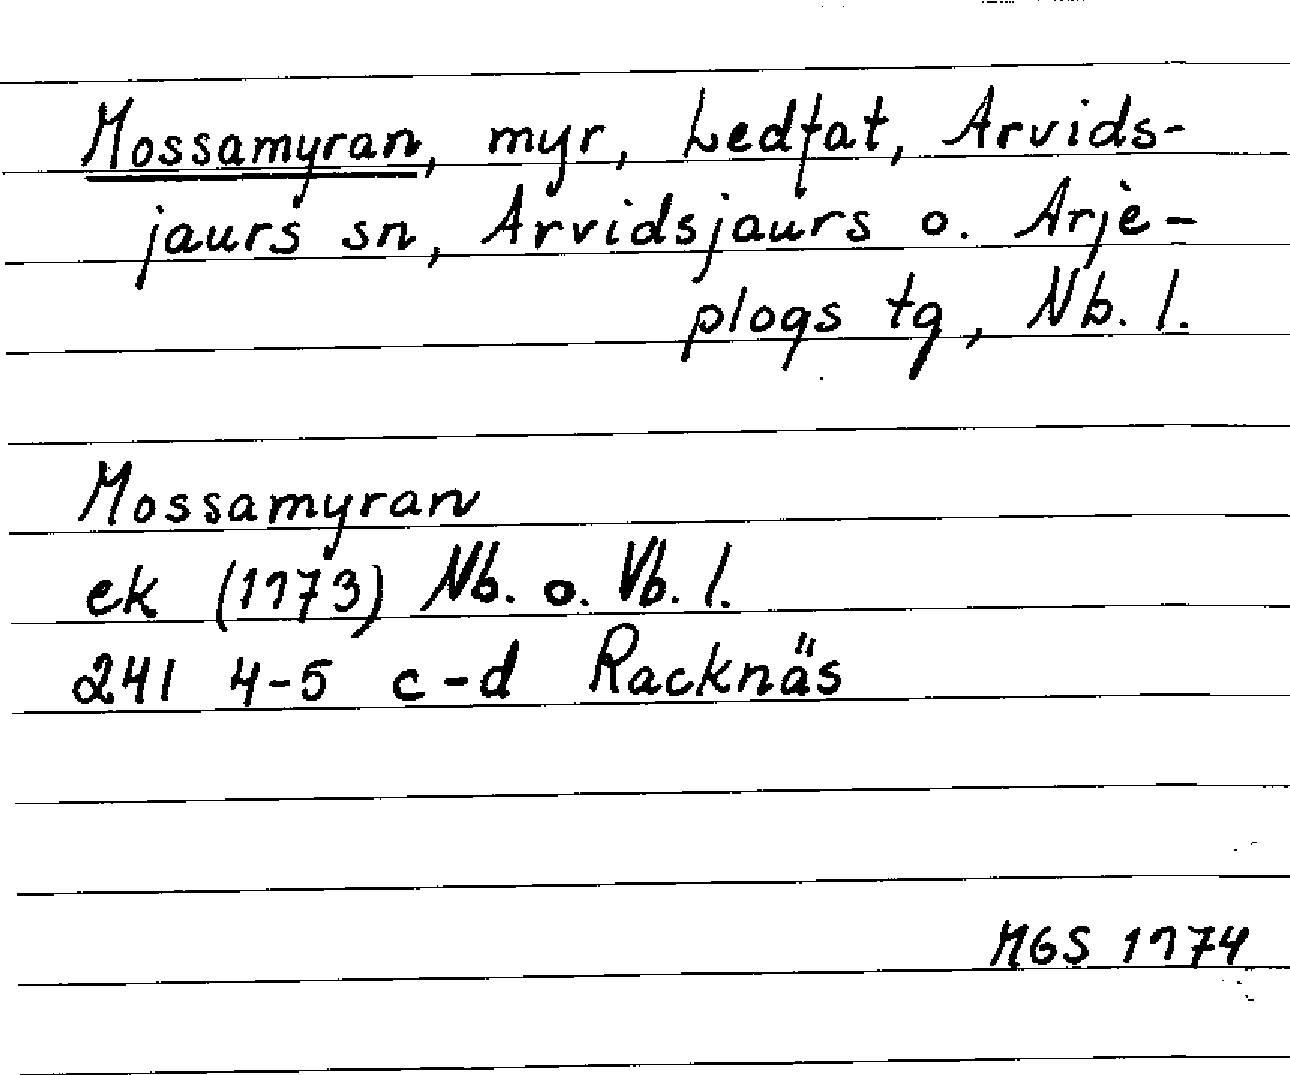 Mossamyran, myr, Ledfat, Arvids-
jaurs sn, Arvidsjaurs o. Arje-
plogs tg, Nb. l.
Mossamyran
ek (1973) Nb. o. Vb. l.
241 4-5 c-d Racknäs
MGS 1974